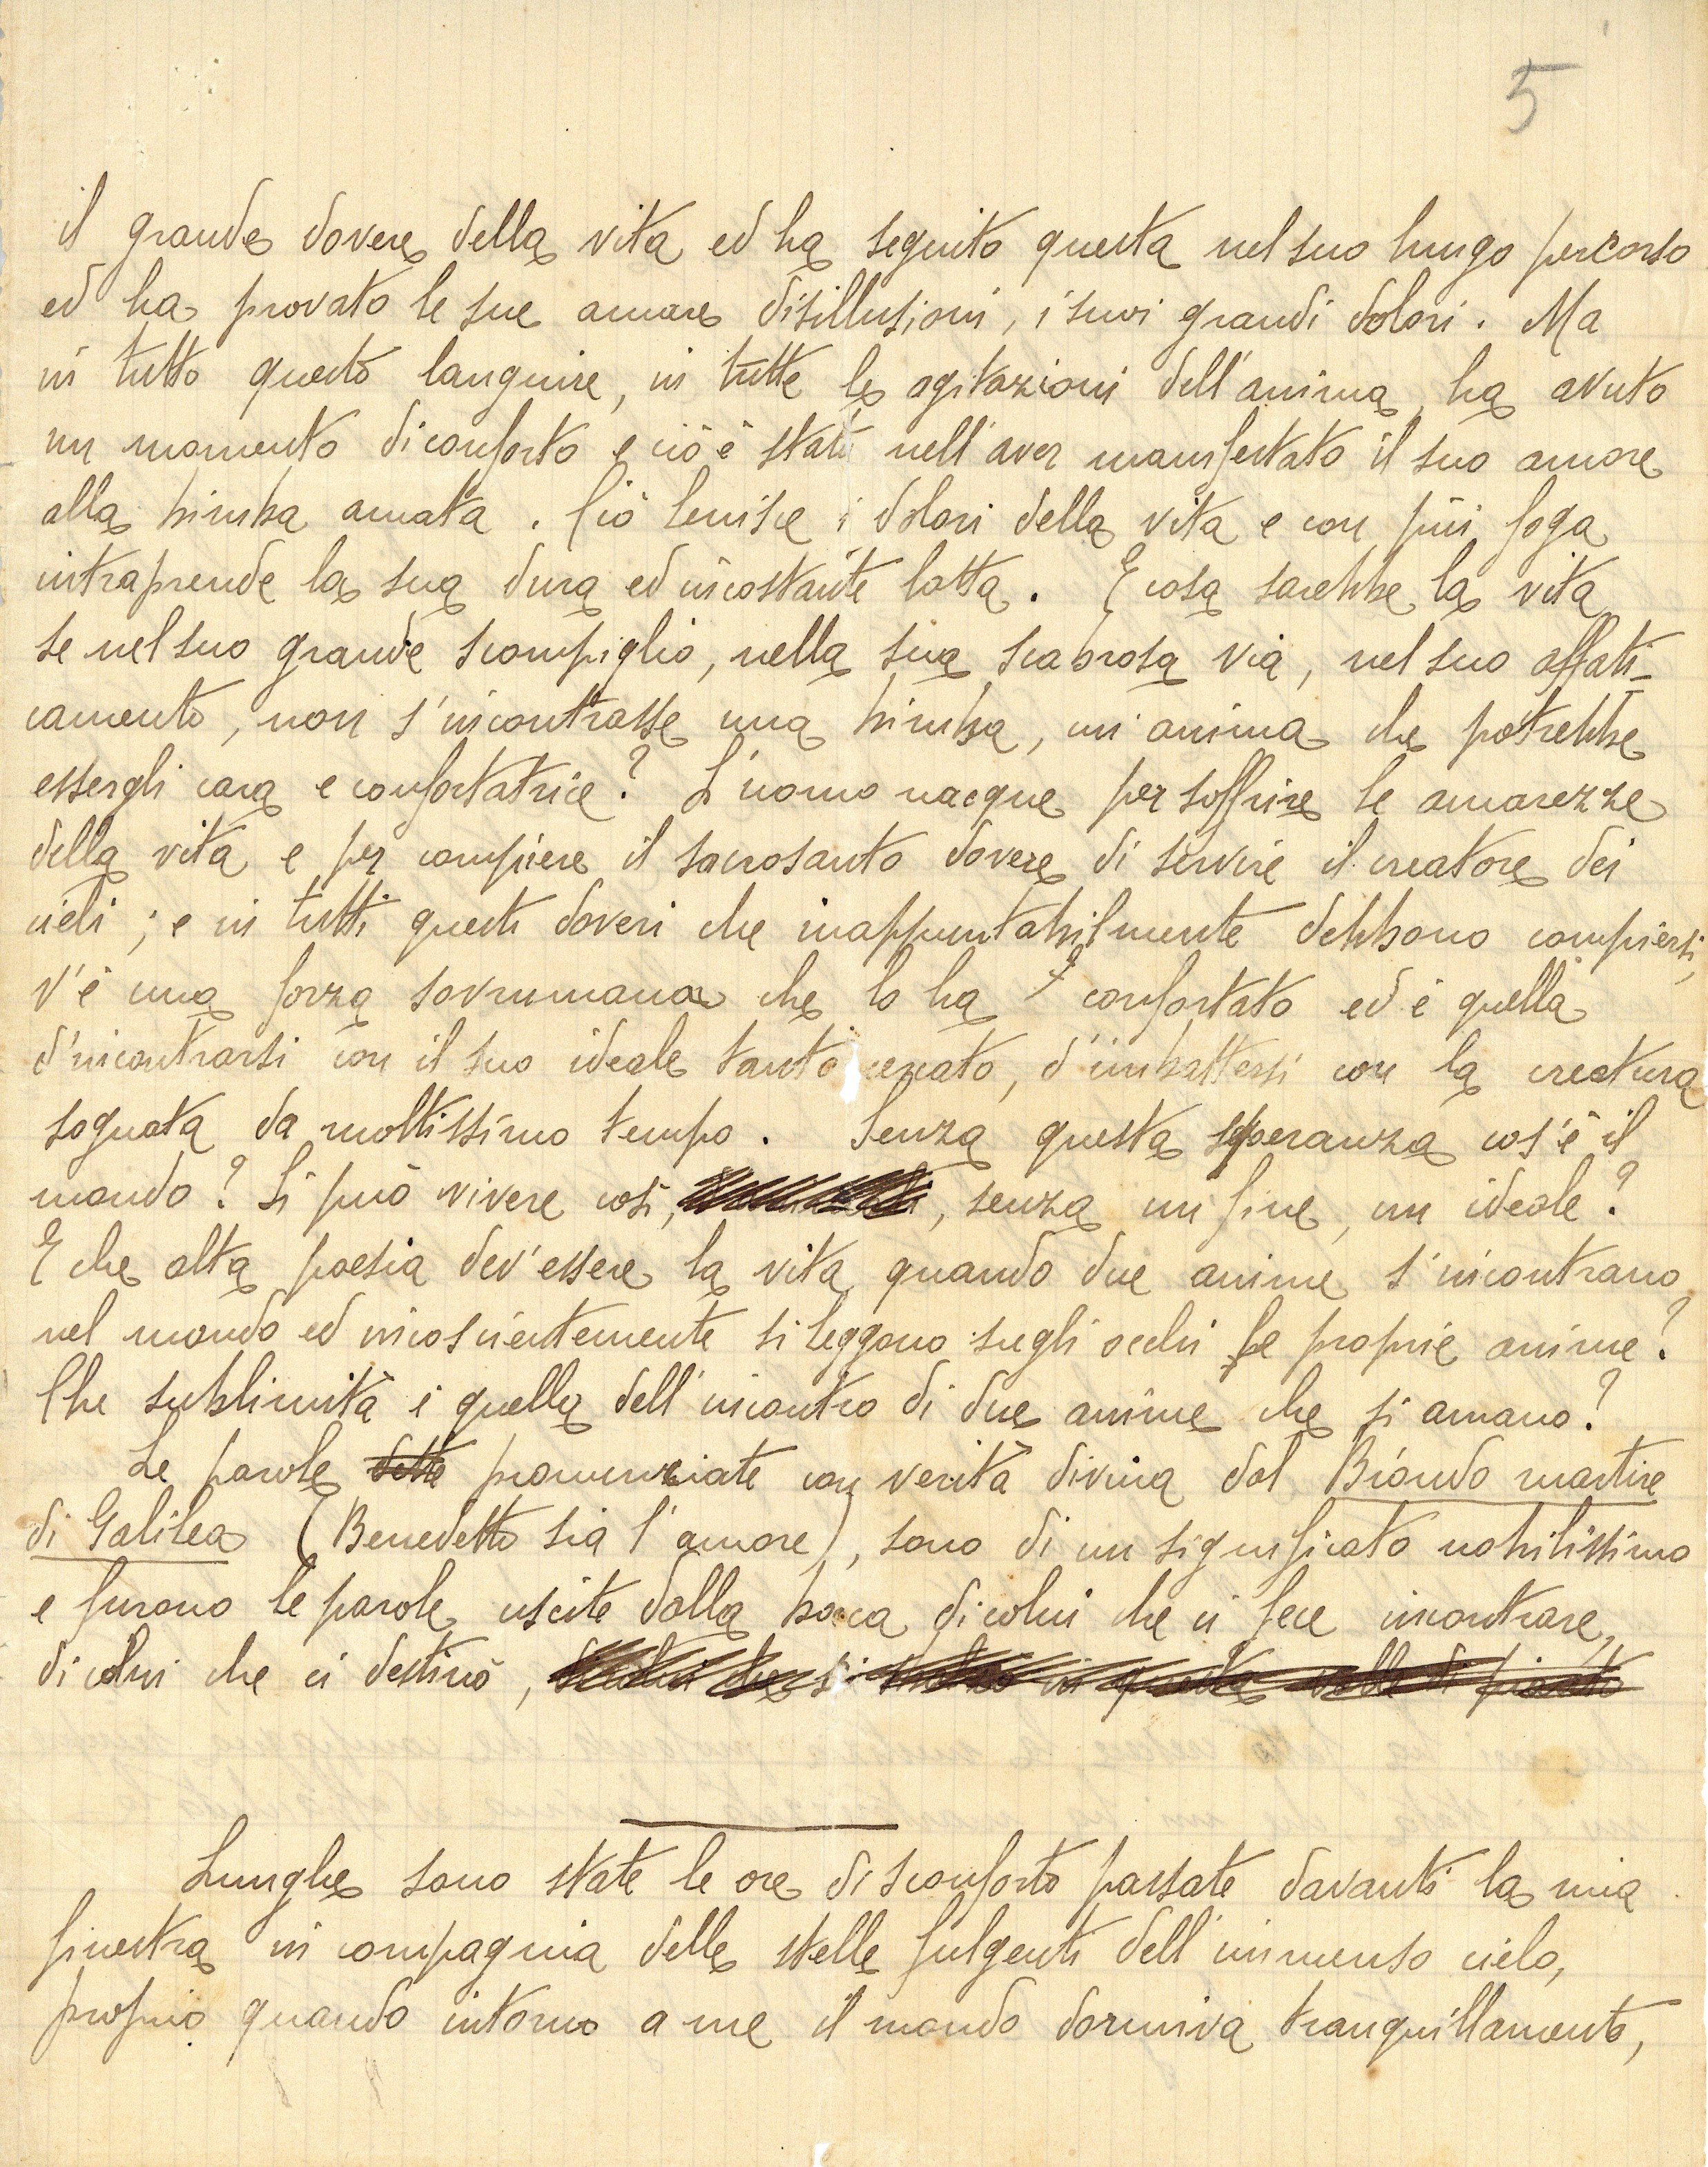 5
il grande dovere della vita ed ha seguito questa nel suo lungo percorso
ed ha provato le sue amare disillusioni, i suoi grandi dolori. Ma
in tutto questo languire, in tutte le agitazioni dell'anima, ha avuto
un momento di conforto e ciò è stato nell'aver manifestato il suo amore
alla bimba amata. Ciò lenisce i dolori della vita e con più foga
intraprende la sua dura ed incostante lotta. E cosa sarebbe la vita
se nel suo grande scompiglio, nella sua scabrosa via, nel suo affati-
camento, non s'incontrasse una bimba, un'anima che potrebbe
essergli cara e confortatrice? L'uomo nacque per soffrire le amarezze
della vita e per compiere il sacrosanto dovere di servire il creatore dei
cieli; e in tutti questi doveri che inappuntabilmente debbono compiersi,
v'è una forza sovrumana che lo ha confortato ed è quella
d'incontrarsi con il suo ideale tanto cercato, d'imbattersi con la creatura
sognata da moltissimo tempo. Senza questa speranza cos'è il
mondo? Si può vivere così, , senza un fine, un ideale?
E che alta poesia dev'essere la vita quando due anime s'incontrano
nel mondo ed incoscientemente si leggono sugli occhi le proprie anime?
Che sublimità è quella dell'incontro di due anime che si amano?
Le parole dette pronunziate con verità divina dal Biondo martire
di Galilea (Benedetto sia l'amore), sono di un significato nobilissimo
e furono le parole uscite dalla bocca di colui che ci fece incontrare,
di colui che ci destinò, in questa valle di pianto
Lunghe sono state le ore di sconforto passate davanti la mia
finestra in compagnia delle stelle fulgenti dell'immenso cielo,
proprio quando intorno a me il mondo dormiva tranquillamente,